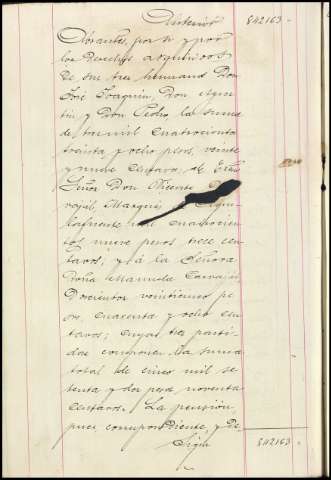 Anterior 842163 -
Abrantes, por si y por
los derechos adquiridos
de sus tres hermanos Don
José Joaquin, Don Agus
tin y Don Pedro, la suma
de tres mil cuatrocientos
treinta y ocho pesos, veinte
y nueve centavos, al
Señor Don Vicente
vajal, Marqués de
cuatrocien
tos nueve pesos trece cen
tavos; y á la Señora
Doña Manuela Carvajal
Doscientos veinticinco pe
sos cuarenta y ocho cen
tavos; cuyas tres parti
das componen la suma
total de cinco mil se
tenta y dos pesos noventa
centavos. La pension,
pues correspondiente, y de
Sigue 842163 -